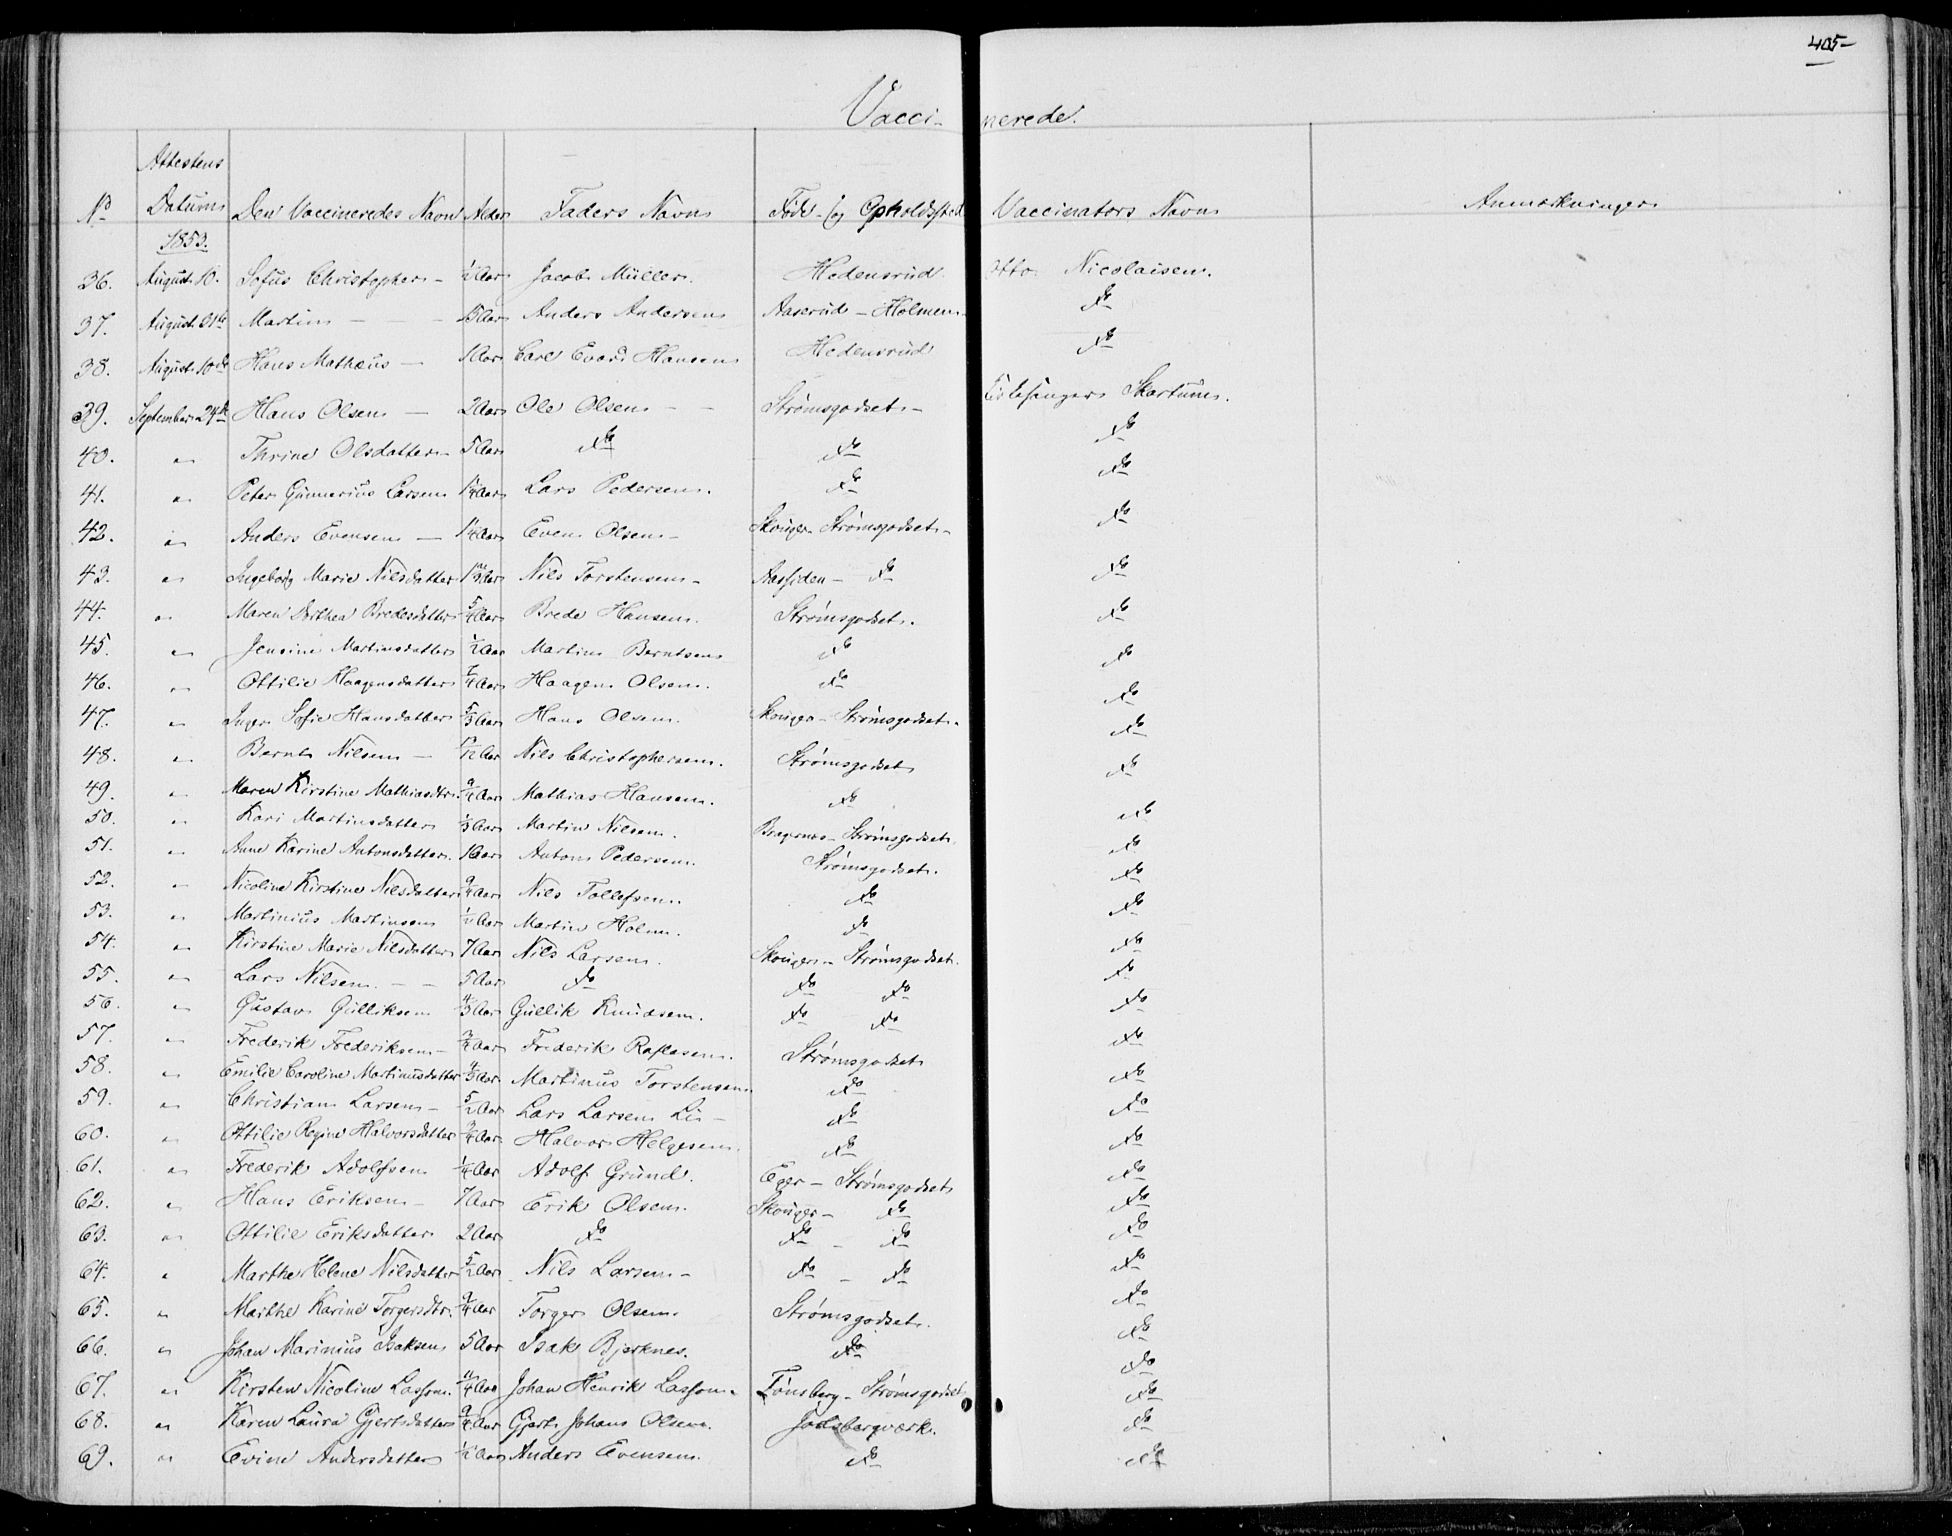 405
Vaccinerede.
No Attestens Datum Den Vaccineredes Navn Alder Faders Navn Føde- og Opholdssted Vaccinators Navn Anmærkninger
1853.
36. August 10. Sofus Christopher - ½ Aar Jacob Müller. Hedensrud Otto Nicolaisen.
37. August 31te Martin - Aar Anders Andersen Aaserud - Holmen do
38. August 10de Hans Mathæus - 1 Aar Carl Evard Hansen Hedensrud do
39. September 24de Hans Olsen - 2 Aar Ole Olsen - - Strømsgodset - Skartum.
40. " Thrine Olsdatter - 5 Aar do do do
41. " Peter Gunnerius Larsen 1¼ Aar Lars Pedersen. do do
42. " Anders Evensen - 1¼ Aar Even Olsen - Skouger - Strømsgodset - do
43. " Ingeborg Marie Nilsdatter Aar Nils Torstensen - Aassiden - do do
44. " Maren Dorthea Bredesdatter 5/4 Aar Brede Hansen. Strømsgodset. do
45. " Jensine Martinsdatter ½ Aar Martin Berntsen do do
46. " Ottilie Haagensdatter 7/4 Aar Haagen Olsen. do do
47. " Inger Sofie Hansdatter 5/3 Aar Hans Olsen. Skouger - Strømsgodset. do
48. " Bernt Nilsen - Aar Nils Christophersen. Strømsgodset do
49. " Maren Kirstine Mathiasdtr. 9/4 Aar Mathias Hansen. do do
50. " Kari Martinsdatter ⅓ Aar Martin Nilsen. Bragernes - Strømsgodset. do
51. " Anne Karine Antonsdatter. Aar Anton Pedersen. Strømsgodset. do
52. " Nicoline Kirstine Nilsdatter 9/4 Aar Nils Tollefsen. do do
53. " Martinius Martinsen ½ Aar Martin Holm. do do
54. " Kirstine Marie Nilsdatter 7 Aar Nils Larsen. Skouger - Strømsgodset. do
55. " Lars Nilsen. - - 5 Aar do do do do
56. " Gustav Gulliksen 4/3 Aar Gullik Knudsen. do do do
57. " Frederik Frederiksen - ¾ Aar Frederik Strømsgodset do
58. " Emilie Caroline Martinusdatter 4/3 Aar Martinus Torstensen do do
59. " Christian Larsen - 5/2 Aar Lars Larsen Li - do do
60. " Ottilie Regine Halvorsdatter ¾ Aar Halvor Helgesen. do do
61. " Frederik Adolfsen ¼ Aar Adolf Grund. Eger - Strømsgodset do
62. " Hans Eriksen - 7 Aar Erik Olsen. Skouger - do do
63. " Ottilie Eriksdatter 2 Aar do do - do do
64. " Marthe Helene Nilsdatter 5/2 Aar Nils Larsen - do - do do
65. " Marthe Karine Torgersdtr. 9/4 Aar Torger Olsen. Strømsgodset. do
66. " Johan Marinius Isaksen 5 Aar Isak Bjerknes. do do
67. " Kirsten Nicoline Lassen. Aar Johan Henrik Lassen - Tønsberg - Strømsgodset do
68. " Karen Laura Gjertsdatter 9/4 Aar Gjert Johan Olsen. Jarlsbergværk. do
69. " Evine Andersdatter ½ Aar Anders Evensen. do do